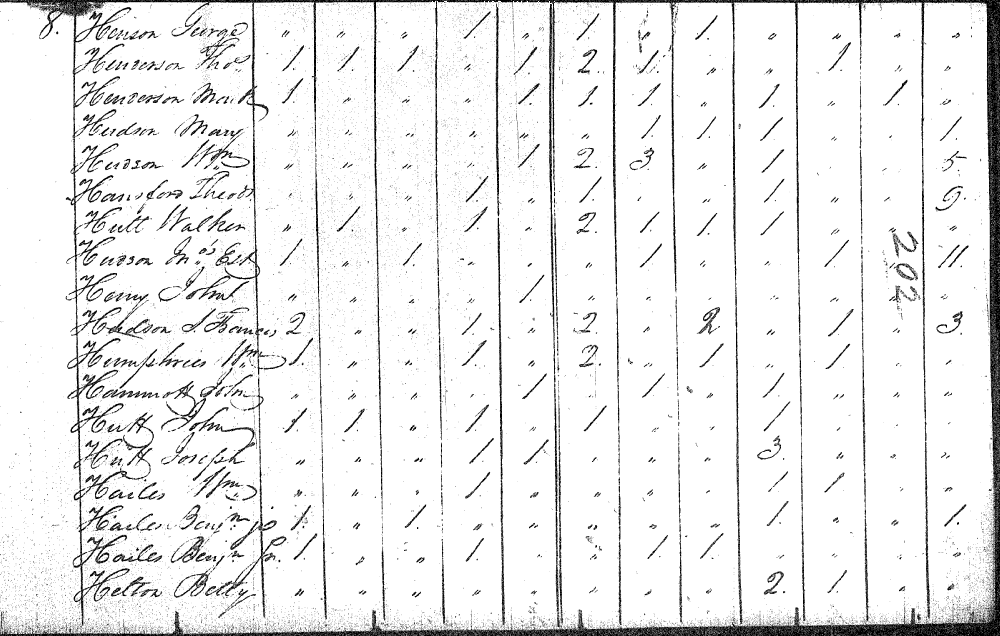 8. Henson George " " " 1. " 1. " 1. " " " "
Henderson Thos. 1. 1. 1. " 1. 2. 1. " " 1. " "
Henderson Mark 1. " " " 1. 1. 1. " 1. " 1. "
Hudson Mary " " " " " " 1. 1. 1. " " 1.
Hudson Wm " " " " 1. 2. 3. " 1. " " 5.
Hansford Theods " " " 1. " 1. " " 1. " " 9.
Hutt Walker " 1. " 1. " 2. 1. 1. 1. " " "
Hudson 1. " 1. " " " 1. " " 1. " 11.
Henry John " " " " 1. " " " " " " "
Hudson Frances 2. " " 1. " 2. " 2 " 1. " 3.
Humphries Wm 1. " " 1. " 2. " 1. " 1. " "
Hammott John " " " " 1. " 1. " 1. " " "
Hutt John 1. 1. " 1. " 1. " " 1. " " "
Hutt Joseph " " " 1. 1. " " " 3. " " "
Hailes Wm " " " 1. " " " " 1. 1. " "
Hailes Benjn. jr 1. " 1. " " " " " 1. " " 1.
Hailes Benjn Sr. 1. " " 1. " " 1. 1. " " " "
Helton Betty " " " " " " " " 2. 1. " "
202